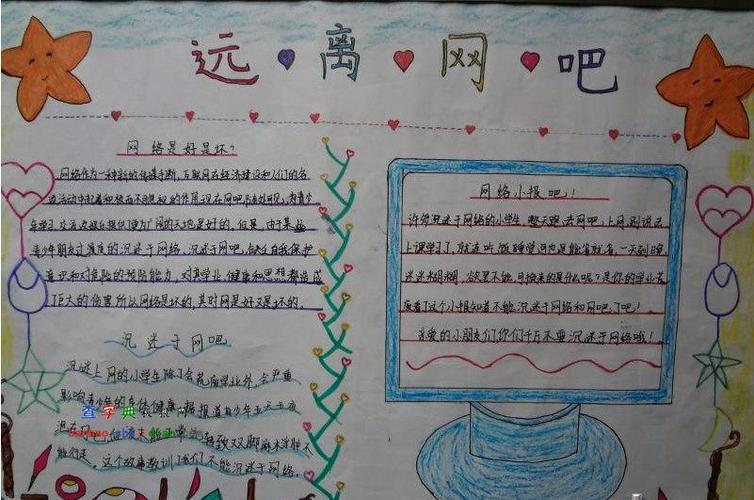 远离网吧
网络是好是坏？
网络作为一种新的传媒手断，互联网在经济建设和人们的各
项活动中起着积极而不可忽视的作用现在网吧
年学习、交流、娱乐提供了更为广阔的天地是好的，但是，由于某些
青少年朋友过渡度的沉迷于网络，沉迷于网吧，缺乏自我保护
意识和对危险的预防能力，对其学业、健康和思想都造成
了巨大的伤害所以网络是坏的，其时网是好又是坏的．
沉迷于网吧
沉迷上网的小学生除了会荒废学业外，会严重
影响青少年的身体健康，据报道有少年五天五夜
导致双脚麻木浮肿不
能行走．这个故事教训了我们不能沉迷于网络．
网络小报吧！
许多沉迷于网络的小学生，整天跑去网吧，上网，别说去
上课学习了，就连吃饭睡觉可也是能省就省，一天到晚
迷迷糊糊，欲罢不能，可换来的是什呢？是你的学业荒
废看了这个小报知道不能沉迷于网络和网吧了吧！
亲爱的小朋友们你们千万不要沉迷于网络哦！
查字典